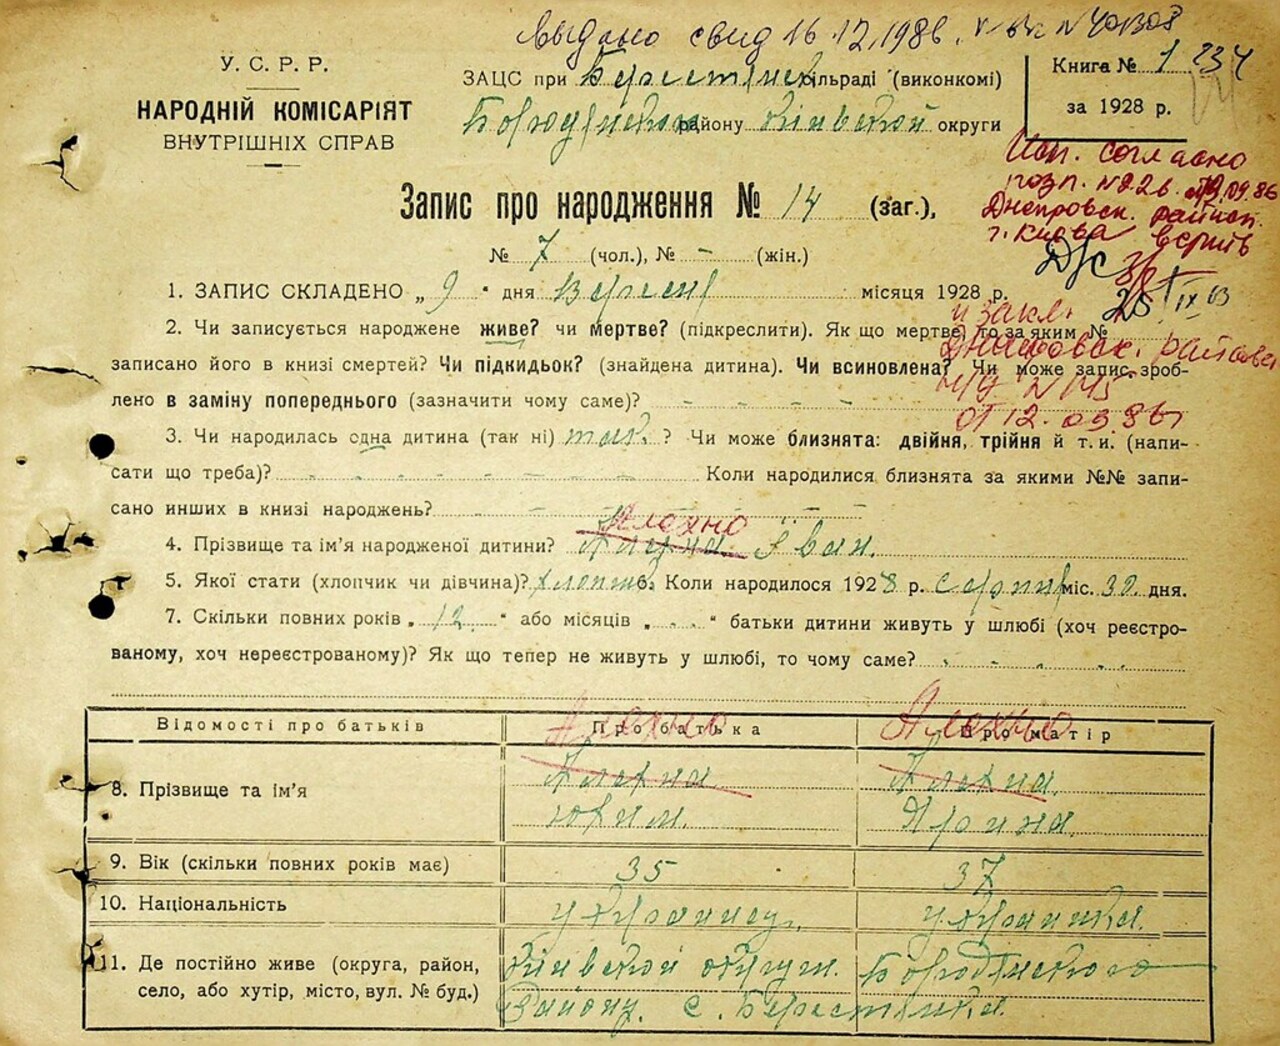 Выдано свид 16.12.1986.
У. С. Р. Р.
НАРОДНІЙ КОМІСАРІЯТ
ВНУТРІШНІХ СПРАВ
ЗАЦС при сільраді (виконкомі)
району Київской округи
Книга № 1 234
за 1928 р.
Исп. согласно
розп. №22в. 09.86
Днепровск.
г. Киева
Запис про народження № 14 (заг.),
№ 7 (чол.), № - (жін.)
1. ЗАПИС СКЛАДЕНО „ 9 “ дня Вересня місяця 1928 р.
и закл.
2. Чи записується народжене живе? чи мертве? (підкреслити). Як що мертве, то за яким №
записано його в книзі смертей? Чи підкидьок? (знайдена дитина). Чи всиновлена? Чи може запис зроб-
лено в заміну попереднього (зазначити чому саме)? - - - - -
от 12.09.86
3. Чи народилась одна дитина (так ні) так. ? Чи може близнята: двійня, трійня й т. и. (напи-
сати що треба)? Коли народилися близнята за якими №№ запи-
сано инших в книзі народжень?
Алехно
4. Прізвище та ім’я народженої дитини? Алехна Іван.
5. Якої стати (хлопчик чи дівчина)? хлопчик 6. Коли народилося 1928 р. серпня міс. 30. дня.
7. Скільки повних років „ 12 “ або місяців „ - “ батьки дитини живуть у шлюбі (хоч реєстро-
ваному, хоч нереєстрованому)? Як що тепер не живуть у шлюбі, то чому саме?
Алехно Алехно
Відомості про батьків Про батька Про матір
8. Прізвище та ім’я Алехна Юхим. Алехна. Ярина.
9. Вік (скільки повних років має) 35 37
10. Національність українец. українка.
11. Де постійно живе (округа, район,
село, або хутір, місто, вул. № буд.)
Київской округи. Бородянского
Району. с. Берестянка.